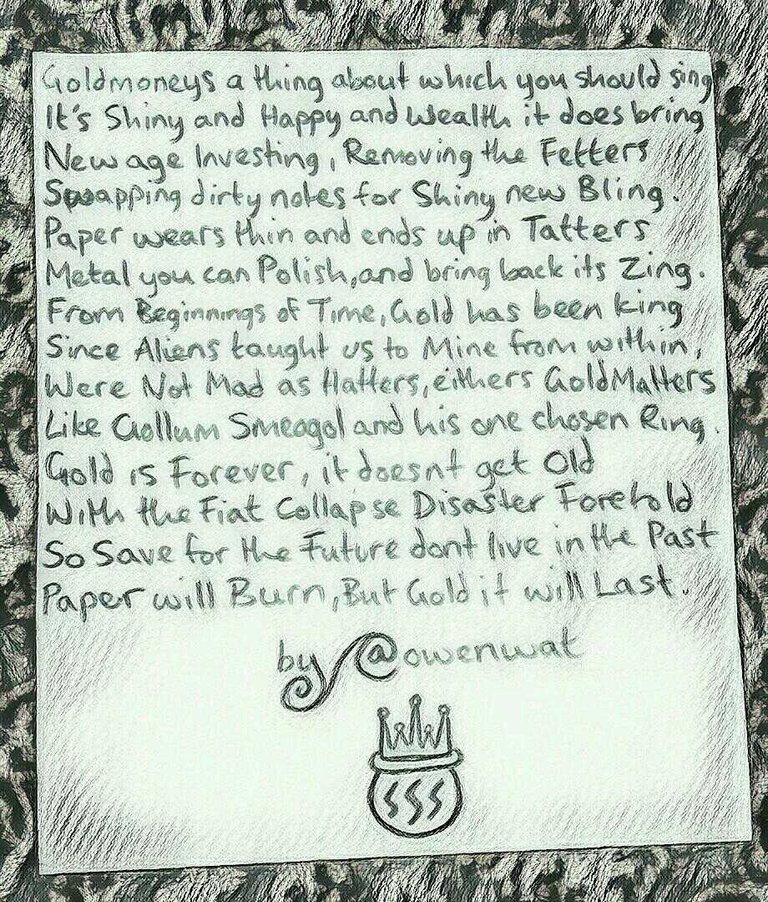 Goldmoneys a thing about which you should sing
It's Shiny and Happy and Wealth it does bring
New age Investing, Removing the Fetters
Swapping dirty notes for Shiny new Bling.
Paper wears thin and ends up in Tatters
Metal you can Polish, and bring back its Zing.
From Beginnings of Time, Gold has been king
Since Aliens taught us to Mine from within,
Were Not Mad as Hatters, eithers GoldMatters
Like Gollum Smeagol and his one chosen Ring.
Gold is Forever, it doesnt get Old
With the Fiat Collapse Disaster Foretold
So Save for the Future dont live in the Past
Paper will Burn, But Gold it will Last.
by @owenwat
SSS